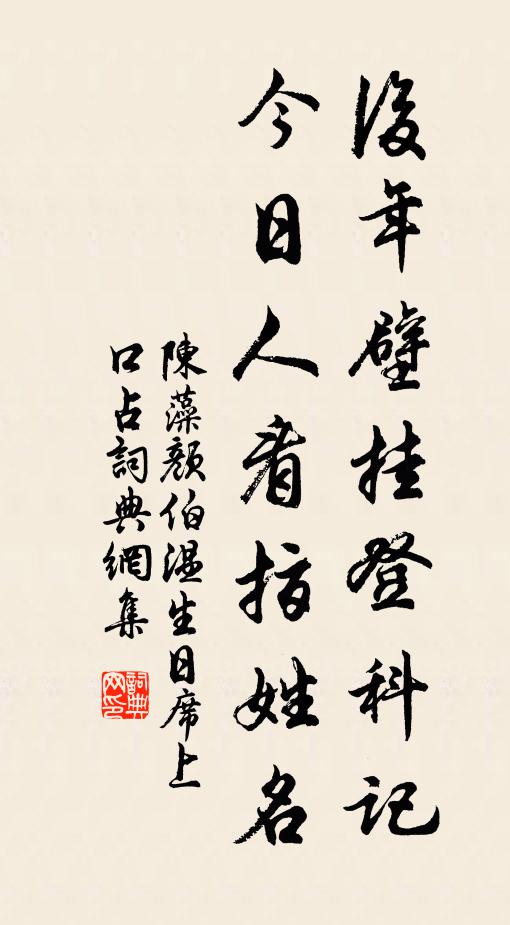 後年壁挂登科記
今日人看指姓名
陳藻顏伯温生日席上
口占詞典網集
詞典網印